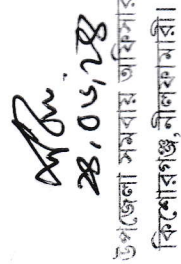 ২৪.০৬.২৪
উপজেলা সমবায় অফিসার
কিশোরগঞ্জ, নীলফামারী।